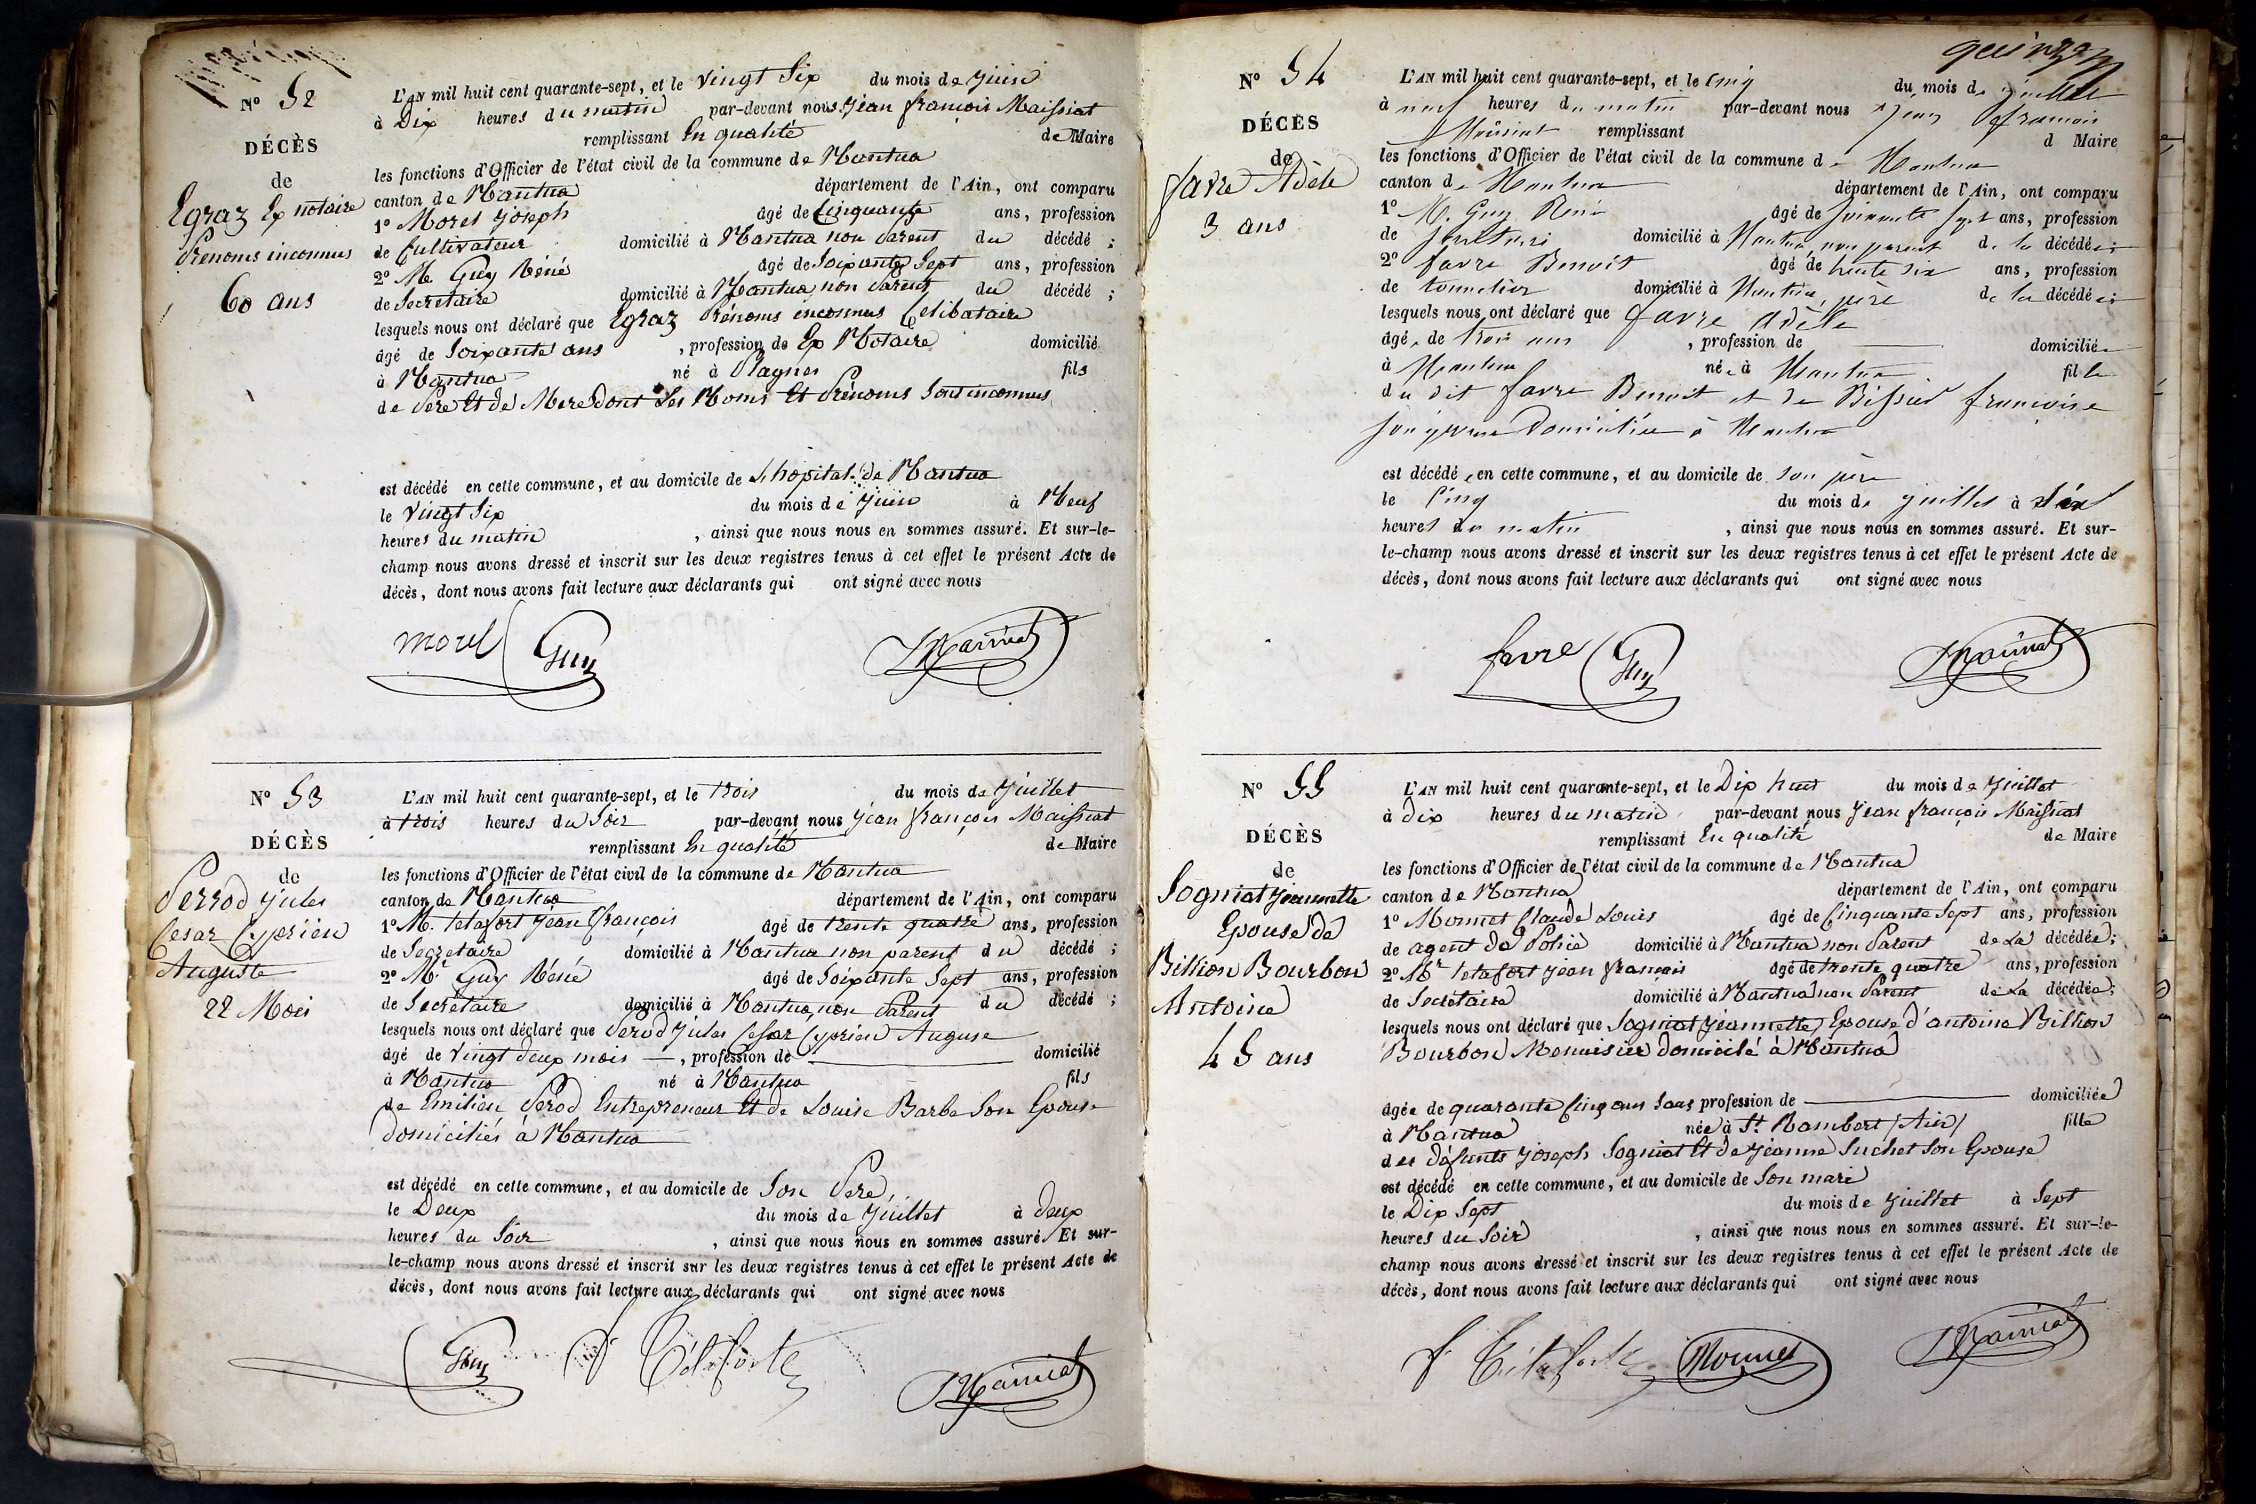 N° 52
DÉCÈS
de
Egraz Ex notaire
Prénoms inconnus
60 ans
L'AN mil huit cent quarante-sept, et le vingt Six du mois de Juin
à Dix heures du matin par-devant nous Jean françois Maissiat
remplissant En qualité de Maire
les fonctions d'Officier de l'état civil de la commune de Nantua
canton de Nantua département de l'Ain, ont comparu
1° Morel Joseph âgé de Cinquante ans, profession
de Cultivateur domicilié à Nantua non parent du décédé ;
2° Mr Guy Réné âgé de Soixante Sept ans, profession
de Secretaire domicilié à Nantua non parent du décédé ;
lesquels nous ont déclaré que Egraz Prénoms inconnus Celibataire
âgé de Soixante ans , profession de Ex Notaire domicilié
à Nantua né à Plagnes fils
de Pere Et de Mere dont les Noms Et Prénoms Sont inconnus
est décédé en cette commune, et au domicile de L'hopital de Nantua
le vingt Six du mois de Juin à Neuf
heures du matin , ainsi que nous nous en sommes assuré. Et sur-le-
champ nous avons dressé et inscrit sur les deux registres tenus à cet effet le présent Acte de
décès, dont nous avons fait lecture aux déclarants qui ont signé avec nous
morel Guy Maissiat
N° 53
DÉCÈS
de
Perrod Jules
Cesar Cyprien
Auguste
22 Mois
L'AN mil huit cent quarante-sept, et le trois du mois de Juillet
à trois heures du Soir par-devant nous Jean françois Maissiat
remplissant En qualité de Maire
les fonctions d'Officier de l'état civil de la commune de Nantua
canton de Nantua département de l'Ain, ont comparu
1° M. Tetafort Jean françois âgé de trente quatre ans, profession
de Secretaire domicilié à Nantua non parent du décédé ;
2° Mr Guy Réné âgé de Soixante Sept ans, profession
de Secretaire domicilié à Nantua, non Parent du décédé ;
lesquels nous ont déclaré que Perod Jules Cesar Cyprien Auguse
âgé de vingt deux mois , profession de domicilié
à Nantua né à Nantua fils
de Emilien Perod Entrepreneur Et de Louise Barbe Son Epouse
domiciliés à Nantua
est décédé en cette commune, et au domicile de Son Pere
le Deux du mois de Juillet à deux
heures du Soir , ainsi que nous nous en sommes assuré. Et sur-
le-champ nous avons dressé et inscrit sur les deux registres tenus à cet effet le présent Acte de
décès, dont nous avons fait lecture aux déclarants qui ont signé avec nous
Guy Tetaforte Maissiat
quinze
N° 54
DÉCÈS
de
favre Adèle
3 ans
L'AN mil huit cent quarante-sept, et le Cinq du mois de juillet
à neuf heures du matin par-devant nous Jean françois
Maissiat remplissant d Maire
les fonctions d'Officier de l'état civil de la commune de Nantua
canton de Nantua département de l'Ain, ont comparu
1° M. Guy René âgé de soixante sept ans, profession
de domicilié à Nantua, non parent de la décédée ;
2° favre Benoit âgé de trente six ans, profession
de tonnelier domicilié à Nantua, père de la décédée ;
lesquels nous ont déclaré que favre adèle
âgée de trois ans , profession de domiciliée
à Nantua née à Nantua fille
du dit favre Benoit et de françoise
son épouse Domiciliée à Nantua
est décédée en cette commune, et au domicile de son père
le Cinq du mois de juillet à
heures du matin , ainsi que nous nous en sommes assuré. Et sur-
le-champ nous avons dressé et inscrit sur les deux registres tenus à cet effet le présent Acte de
décès, dont nous avons fait lecture aux déclarants qui ont signé avec nous
favre Guy Maissiat
N° 55
DÉCÈS
de
Sogniat Jeannette
Epouse de
Billion Bourbon
Antoine
45 ans
L'AN mil huit cent quarante-sept, et le Dix huit du mois de Juillet
à dix heures du matin par-devant nous Jean françois Maissiat
remplissant En qualité de Maire
les fonctions d'Officier de l'état civil de la commune de Nantua
canton de Nantua département de l'Ain, ont comparu
1° Monnet Claude Louis âgé de Cinquante Sept ans, profession
de agent de Police domicilié à Nantua non Parent de La décédée ;
2° Mr Tetafort Jean françois âgé de trente quatre ans, profession
de Secrétaire domicilié à Nantua non Parent de La décédée ;
lesquels nous ont déclaré que Sogniat Jeannette, Epouse d'antoine Billion
Bourbon Menuisier domicilé à Nantua
âgée de quarante Cinq ans Sans profession de domiciliée
à Nantua née à St Rambert (Ain) fille
des défunts Joseph Sogniat Et de Jeanne Suchet Son Epouse
est décédé en cette commune, et au domicile de Son mari
le Dix Sept du mois de Juillet à Sept
heures du Soir , ainsi que nous nous en sommes assuré. Et sur-le-
champ nous avons dressé et inscrit sur les deux registres tenus à cet effet le présent Acte de
décès, dont nous avons fait lecture aux déclarants qui ont signé avec nous
Tetaforte Monnet Maissiat